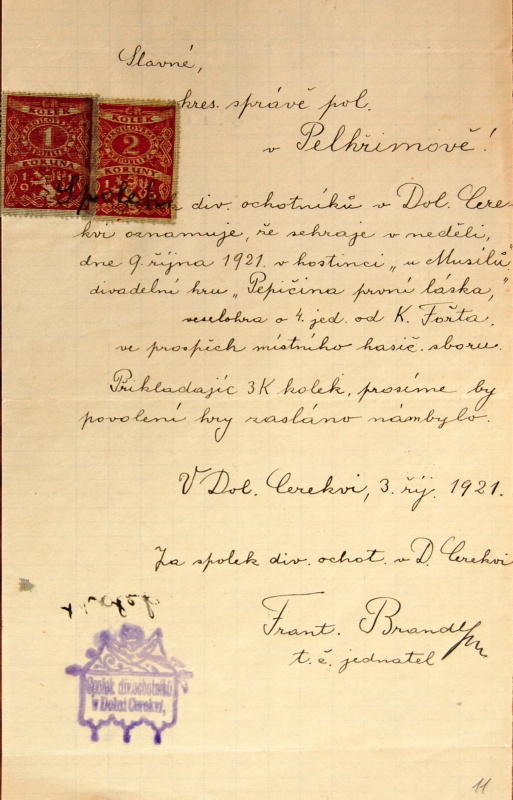 Slavné,
okres. správě pol.
v Pelhřimově!
ČR KOLEK
1
KORUNA
ČR KOLEK
2
KORUNY
Spolek div. ochotníků v Dol. Cere-
kvi oznamuje, že sehraje v neděli,
dne 9. října 1921. v hostinci „u Musilů"
divadelní hru „Pepičina první láska,"
veselohra o 4. jed. od K. Fořta,
ve prospěch místního hasič. sboru.
Přikladajíc 3K kolek, prosíme by
povolení hry zasláno námbylo.
V Dol. Cerekvi, 3. říj. 1921.
Za spolek div. ochot. v D. Cerekvi
Frant. Brandl
t. č. jednatel
Spolek div. ochotníků
v Dolní Cerekvi,
11